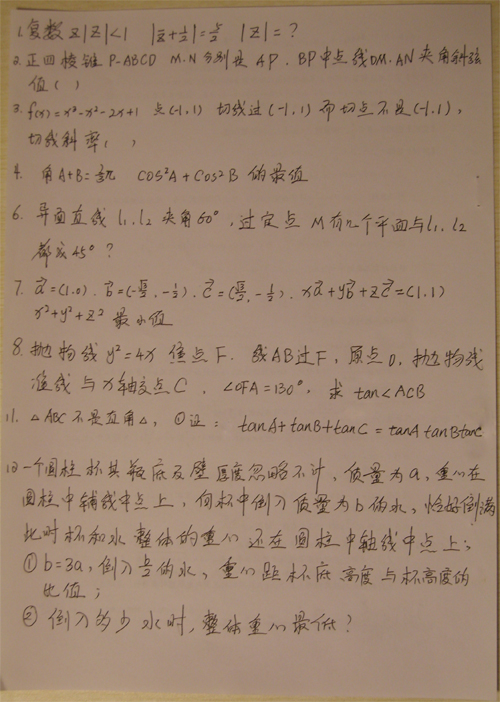 1. 复数 z |z|<1 |z̄+1/z|=5/2 |z|=?
2. 正四棱锥 P-ABCD M.N分别是 AP、BP中点 线DM.AN夹角斜弦
值( )
3. f(x)=x³-x²-2x+1 点(-1,1) 切线过(-1,1)而切点不是(-1,1),
切线斜率( )
4. 角A+B= cos²A+cos²B 的最值
6. 异面直线 l₁.l₂ 夹角60°,过定点 M有几个平面与l₁.l₂
都成45°?
7. a⃗=(1.0). b⃗=(-√3/2,-1/2). c⃗=(√3/2,-1/2). xa⃗+yb⃗+zc⃗=(1.1)
x²+y²+z² 最小值
8. 抛物线 y²=4x 焦点F. 线AB过F,原点O,抛物线
准线与x轴交点C. ∠OFA=130°, 求 tan∠ACB
11. △ABC不是直角△, ①证: tanA+tanB+tanC=tanAtanBtanC
12 一个圆柱杯其瓶底及壁厚度忽略不计,质量为a,重心在
圆柱中轴线中点上,向杯中倒入质量为b的水,恰好倒满
此时杯和水整体的重心还在圆柱中轴线中点上;
① b=3a,倒入 的水,重心距杯底高度与杯高度的
比值;
② 倒入多少水时,整体重心最低?